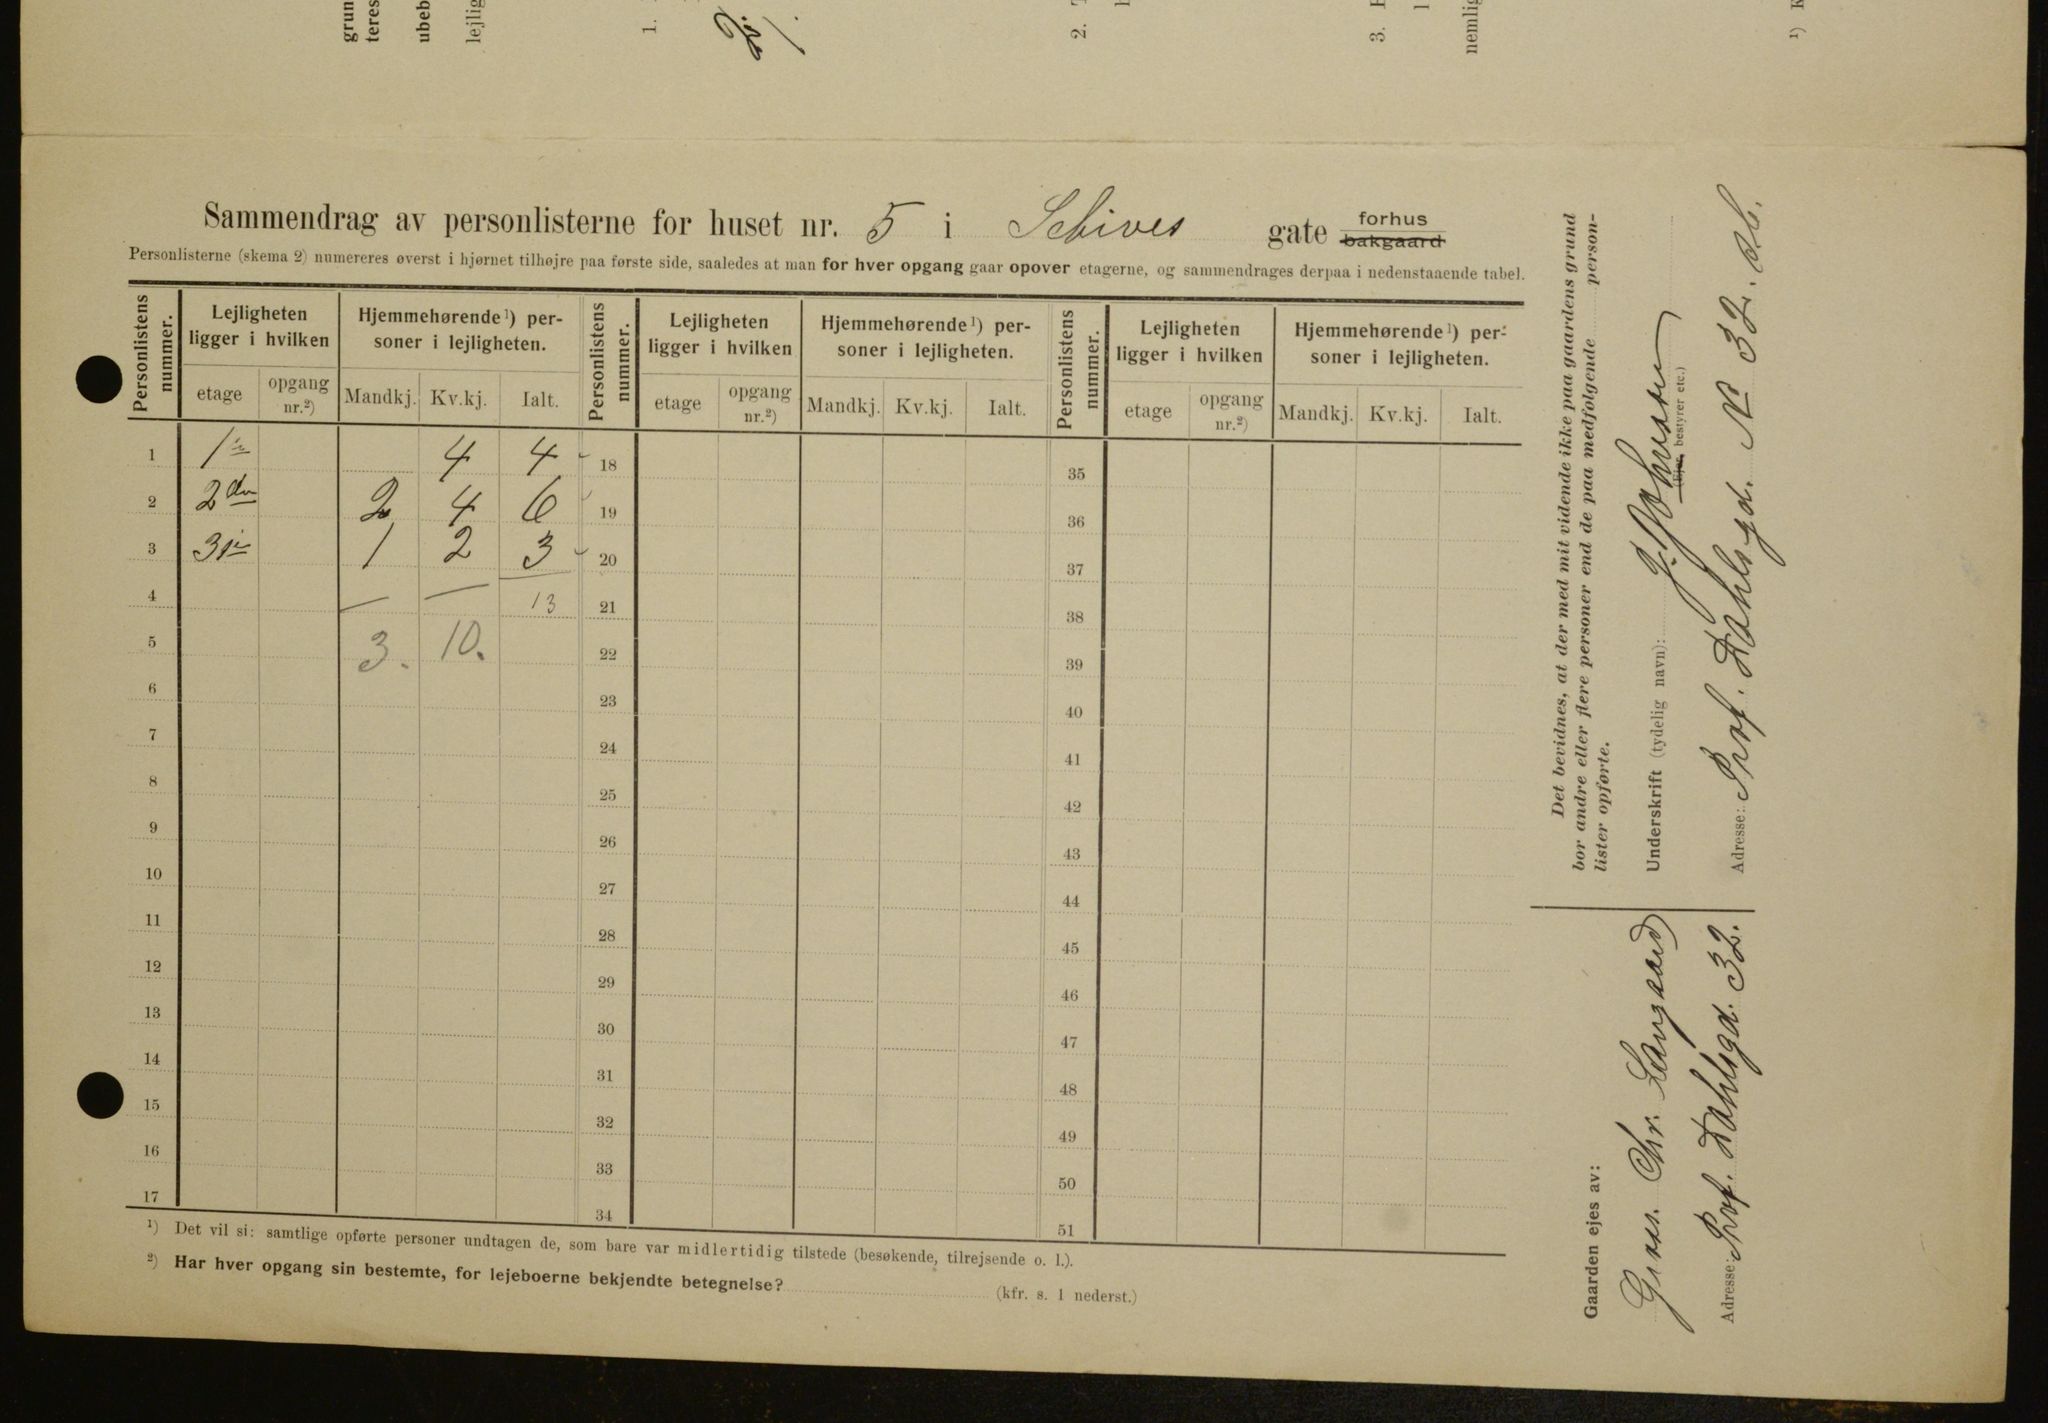 Sammendrag av personlisterne for huset nr. 5 i Schives gate forhus bakgaard
Personlisterne (skema 2) numereres øverst i hjørnet tilhøjre paa første side, saaledes at man for hver opgang gaar opover etagerne, og sammendrages derpaa i nedenstaaende tabel.
Personlistens nummer. Lejligheten ligger i hvilken Hjemmehørende ¹) personer i lejligheten. Personlistens nummer. Lejligheten ligger i hvilken Hjemmehørende ¹) personer i lejligheten. Personlistens nummer. Lejligheten ligger i hvilken Hjemmehørende ¹) personer i lejligheten.
etage opgang nr.²) Mandkj. Kv.kj. Ialt. etage opgang nr.²) Mandkj. Kv.kj. Ialt. etage opgang nr.²) Mandkj. Kv.kj. Ialt.
1 1ste 4 4 18 35
2 2den 2 4 6 19 36
3 3die 1 2 3 20 37
4 13 21 38
5 3. 10. 22 39
6 23 40
7 24 41
8 25 42
9 26 43
10 27 44
11 28 45
12 29 46
13 30 47
14 31 48
15 32 49
16 33 50
17 34 51
¹) Det vil si: samtlige opførte personer undtagen de, som bare var midlertidig tilstede (besøkende, tilrejsende o. l.).
²) Har hver opgang sin bestemte, for lejeboerne bekjendte betegnelse? (kfr. s. 1 nederst.)
Det bevidnes, at der med mit vidende ikke paa gaardens grund
bor andre eller flere personer end de paa medfølgende person-
lister opførte.
Underskrift (tydelig navn): J. Johnsen
(Ejer, bestyrer etc.)
Adresse: Prof. Dahlsgd. No 32.
Gaarden ejes av:
Gross. Chr. Langaard
Adresse: Prof. Dahlsgd. 32.
grun
teres
ubeb
lejlig
1.
2.
3.
nemlig
¹) K